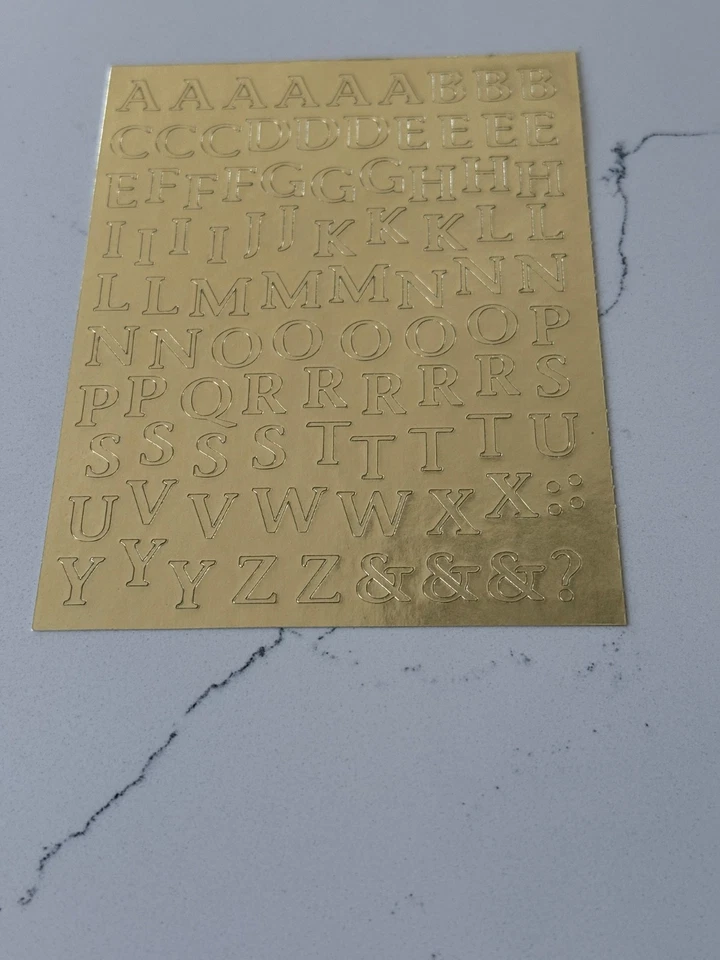 A A A A A A B B B
C C C D D D E E E E
E F F F G G G H H H
I I I I J J K K K L L
L L M M M N N N
N N O O O O O P
P P Q R R R R R S
S S S S T T T T U
U V V W W X X : :
Y Y Y Z Z & & & ?